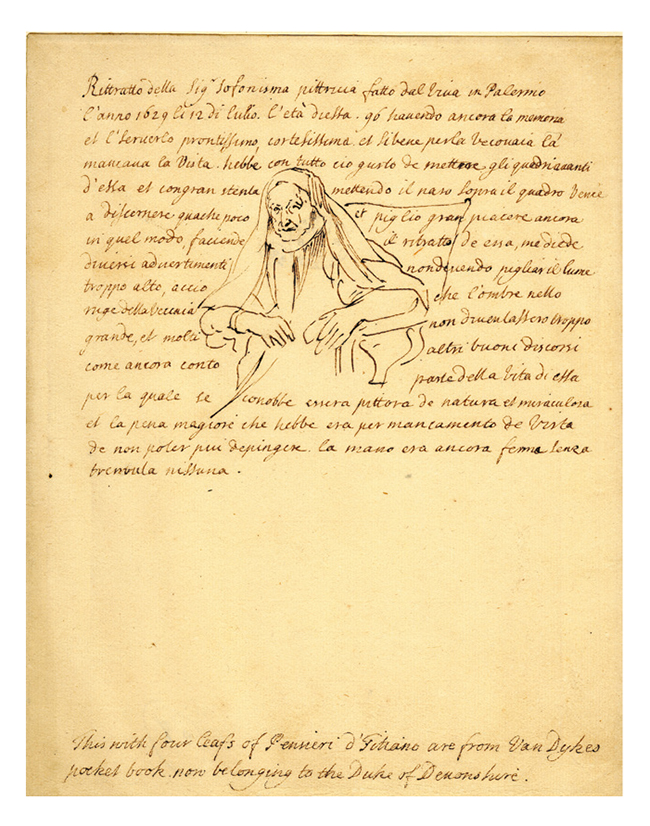 Rittratto della Sigra Sofonisma pittricia fatto dal Viva in Palermo
l'anno 1629 li 12 di Julio. l'età di essa. 96 havendo ancora la memoria
et il serverlo prontissimo, cortesissima, et sibene per la vecovaia la
mancava la Vista. hebbe con tutto cio gusto de mettere gli quadri avanti
d'essa et con gran stenta mettendo il naso sopra il quadro Venne
a discernere quache poco et piglio gran piacere ancora
in quel modo, faccende il ritratto de essa, me diede
diversi advertimenti non devendo pigliar il lume
troppo alto, accio che l'ombre nello
ruge della vecchia non diventassero troppo
grande, et molti altri buoni discorsi
come ancora conto parte della Vita di essa
per la quale se conobbe essera pittora de natura et miraculosa
et la pena magiore che hebbe era per mancamento de Vista
de non poter piu depingere. la mano era ancora ferma senza
tremula nissuna.
This with four leafs of Pensieri d'Titiano are from Van Dykes
pocket book now belonging to the Duke of Devonshire.